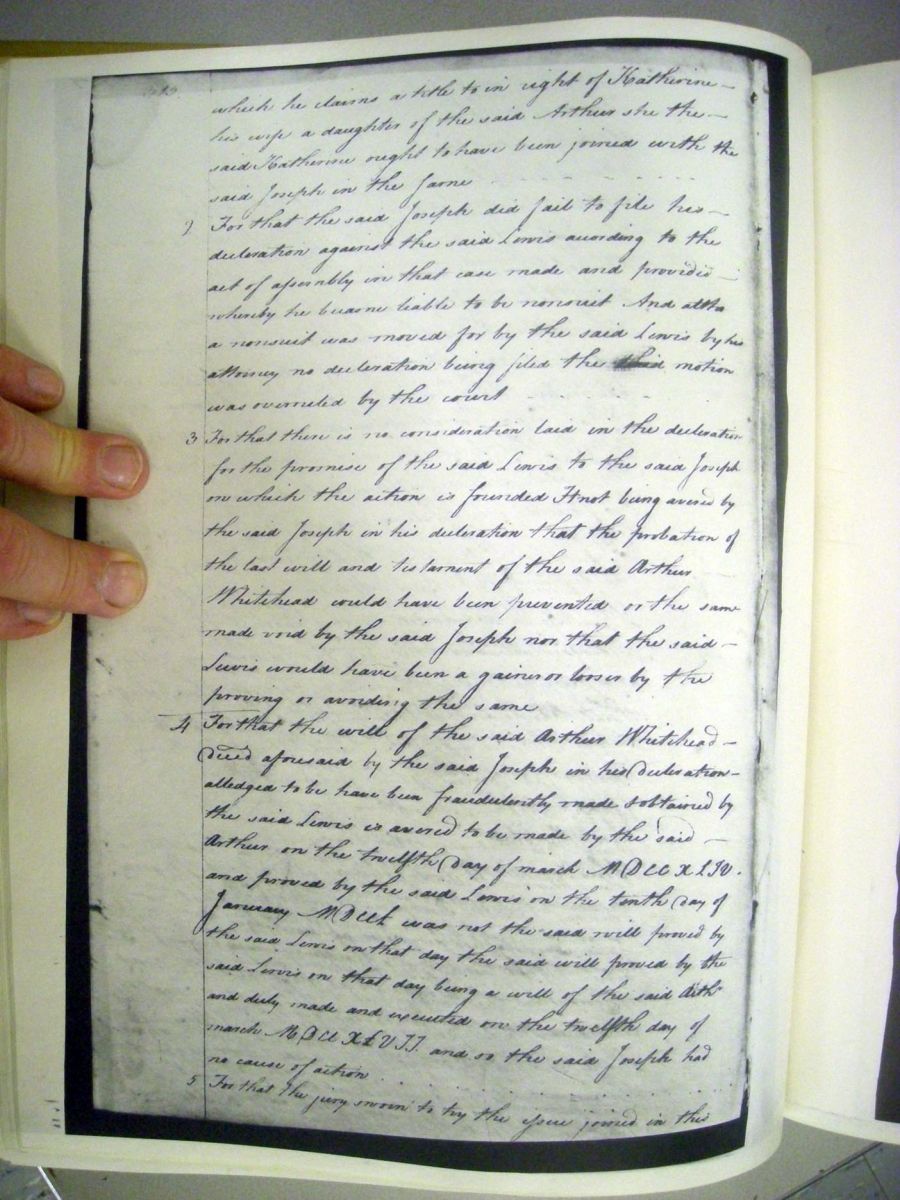 which he claims a title to in right of Katherine –
his wife a daughter of the said Arthur she the –
said Katherine ought to have been joined with the
said Joseph in the same
2 For that the said Joseph did fail to file his –
decleration against the said Lewis acording to the
act of assembly in that case made and provided –
whereby he became liable to be nonsuit And altho
a nonsuit was moved for by the said Lewis by his
attorney no decleration being filed the motion
was overruled by the court
3 For that there is no consideration laid in the decleration
for the promise of the said Lewis to the said Joseph
on which the action is founded It not being avered by
the said Joseph in his decleration that the probation of
the last will and testament of the said Arthur
Whitehead could have been prevented or the same
made void by the said Joseph nor that the said –
Lewis would have been a gainer or looser by the
proving or avoiding the same
4 For that the will of the said Arthur Whitehead –
Deced aforesaid by the said Joseph in his Decleration –
alledged to be have been fraudulently made & obtained by
the said Lewis is avered to be made by the said –
Arthur on the twelfth Day of march MDCCXLIV.
and proved by the said Lewis on the tenth Day of
January MDCCL was not the said will proved by
the said Lewis on that day the said will proved by the
said Lewis on that day being a will of the said Arthr
and duly made and executed on the twelfth day of
march MDCCXLVII. and so the said Joseph had
no cause of action
5 For that the jury sworn to try the issue joined in this